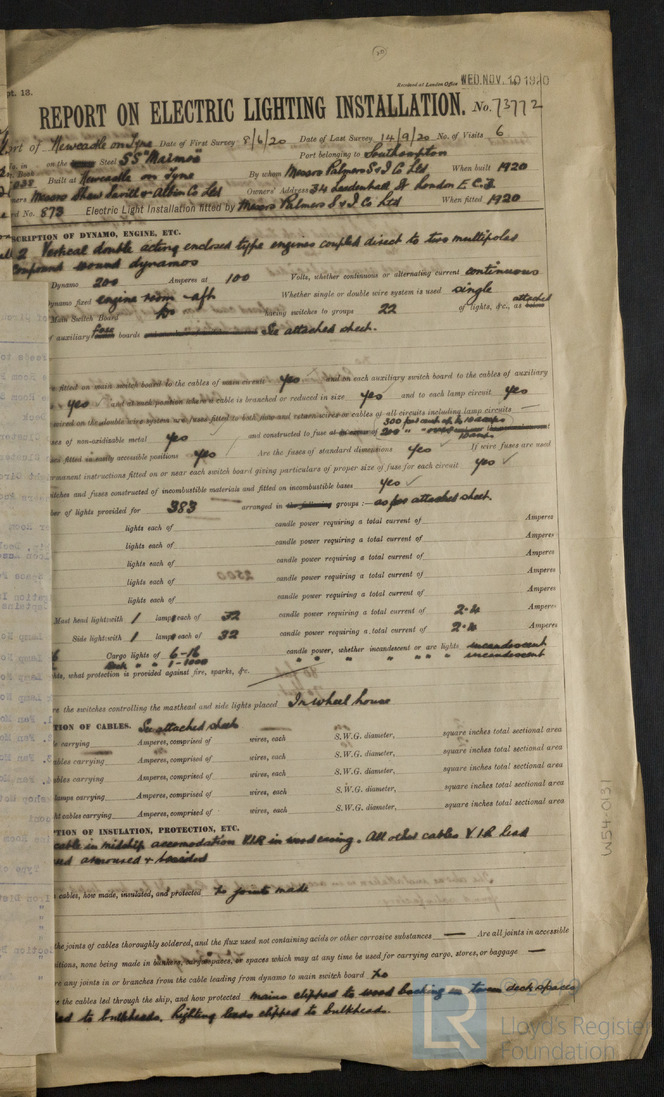 Received at London Office WED. NOV. 10 1920
pt. 13.
REPORT ON ELECTRIC LIGHTING INSTALLATION. No. 73772
ort of Newcastle on Tyne Date of First Survey 8/6/20 Date of Last Survey 14/9/20 No. of Visits 6
on the Steel SS "Marmex" Port belonging to Southampton
Built at Newcastle on Tyne By whom Messrs Palmers S & I Co Ltd When built 1920
Messrs Shaw Savill & Albion Co Ltd Owners' Address 34 Leadenhall St London E.C.3
rd No. 873 Electric Light Installation fitted by Messrs Palmers S & I Co Ltd When fitted 1920
SCRIPTION OF DYNAMO, ENGINE, ETC.
2 Vertical double acting enclosed type engines coupled direct to two multipolar
compound wound dynamos
Dynamo 200 Amperes at 100 Volts, whether continuous or alternating current continuous
ynamo fixed engine room - aft Whether single or double wire system is used single
Main Switch Board having switches to groups 22 of lights, &c., as attached
f auxiliary fuse boards See attached sheet.
s fitted on main switch board to the cables of main circuit yes and on each auxiliary switch board to the cables of auxiliary
yes and at each position where a cable is branched or reduced in size yes and to each lamp circuit yes
wired on the double wire system are fuses fitted to both flow and return wires or cables of all circuits including lamp circuits —
ses of non-oxidizable metal yes and constructed to fuse at 300 per cent up to 10 amps
200 " " 10 amps
es fitted in easily accessible positions yes Are the fuses of standard dimensions yes If wire fuses are used
rmanent instructions fitted on or near each switch board giving particulars of proper size of fuse for each circuit yes
itches and fuses constructed of incombustible materials and fitted on incombustible bases yes
ber of lights provided for 383 arranged in the following groups :— as per attached sheet.
lights each of candle power requiring a total current of Amperes
lights each of candle power requiring a total current of Amperes
lights each of candle power requiring a total current of Amperes
lights each of candle power requiring a total current of Amperes
lights each of candle power requiring a total current of Amperes
Mast head light with 1 lamp each of 32 candle power requiring a total current of 2.4 Amperes
Side light with 1 lamp each of 32 candle power requiring a total current of 2.4 Amperes
6 Cargo lights of 6-16 candle power, whether incandescent or arc lights incandescent
" " 1-1000 " " " " " " incandescent
hts, what protection is provided against fire, sparks, &c.
re the switches controlling the masthead and side lights placed In wheel house
TION OF CABLES. See attached sheet
e carrying Amperes, comprised of wires, each S.W.G. diameter, square inches total sectional area
ables carrying Amperes, comprised of wires, each S.W.G. diameter, square inches total sectional area
ables carrying Amperes, comprised of wires, each S.W.G. diameter, square inches total sectional area
lamps carrying Amperes, comprised of wires, each S.W.G. diameter, square inches total sectional area
ht cables carrying Amperes, comprised of wires, each S.W.G. diameter, square inches total sectional area
TION OF INSULATION, PROTECTION, ETC.
cable in midship accomodation VIR in wood casing. All other cables VIR lead
armoured & braided
cables, how made, insulated, and protected No joints made
the joints of cables thoroughly soldered, and the flux used not containing acids or other corrosive substances — Are all joints in accessible
sitions, none being made in bunkers, cargo spaces, or spaces which may at any time be used for carrying cargo, stores, or baggage —
re any joints in or branches from the cable leading from dynamo to main switch board No
re the cables led through the ship, and how protected mains clipped to wood backing in tween deck spaces
to bulkheads. Lighting leads clipped to bulkheads.
W540131
LR
Lloyd's Register
Foundation